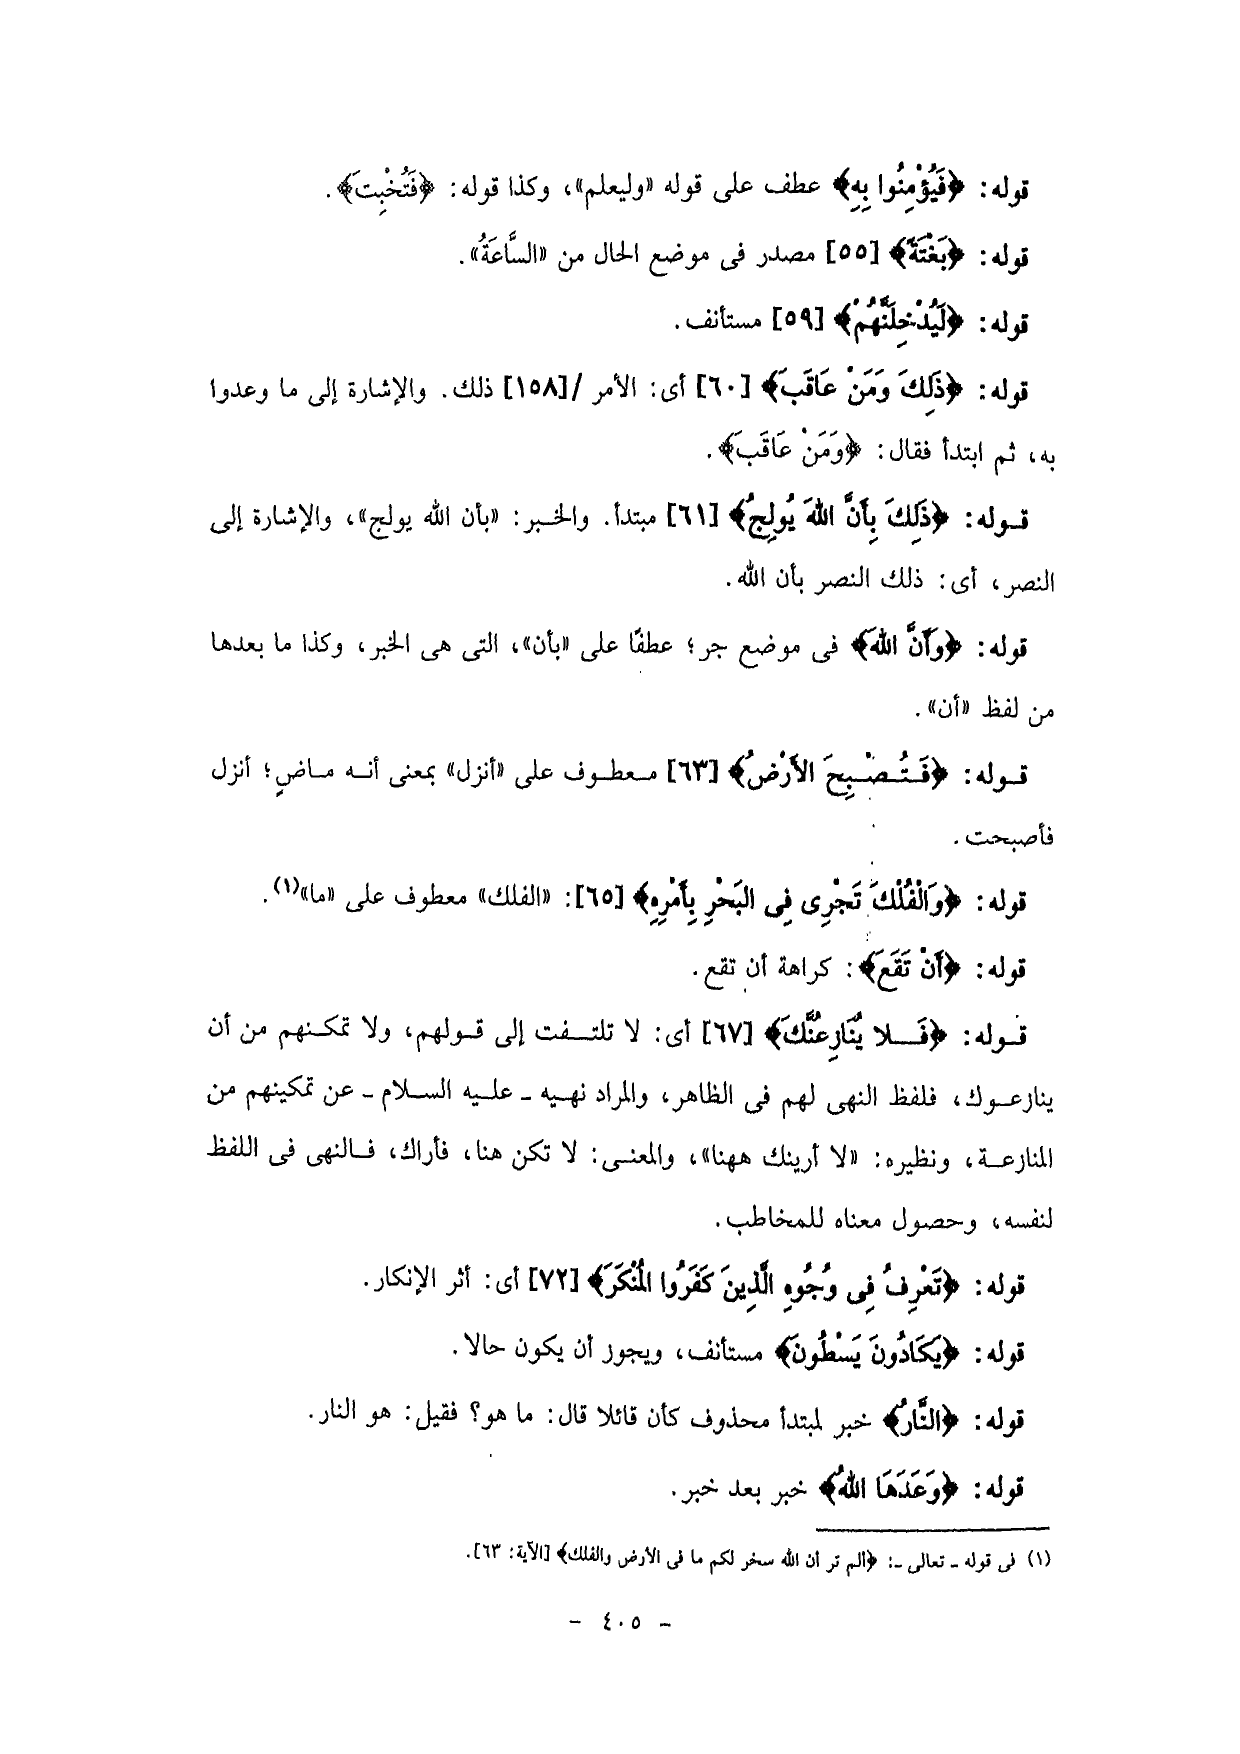 قوله: ﴿فَيُؤْمِنُوا بِهِ﴾ عطف على قوله «وليعلم»، وكذا قوله: ﴿فَتُخْبِتَ﴾.
قوله: ﴿بَغْتَةً﴾ [٥٥] مصدر فى موضع الحال من «السَّاعَةُ».
قوله: ﴿لَيُدْخِلَنَّهُمْ﴾ [٥٩] مستأنف.
قوله: ﴿ذَلِكَ وَمَنْ عَاقَبَ﴾ [٦٠] أى: الأمر /[١٥٨] ذلك. والإشارة إلى ما وعدوا
به، ثم ابتدأ فقال: ﴿وَمَنْ عَاقَبَ﴾.
قوله: ﴿ذَلِكَ بِأَنَّ اللهَ يُولِجُ﴾ [٦١] مبتدأ. والخبر: «بأن الله يولج»، والإشارة إلى
النصر، أى: ذلك النصر بأن الله.
قوله: ﴿وَأَنَّ اللهَ﴾ فى موضع جر؛ عطفًا على «بأن»، التى هى الخبر، وكذا ما بعدها
من لفظ «أن».
قوله: ﴿فَتُصْبِحَ الأَرْضُ﴾ [٦٣] معطوف على «أنزل» بمعنى أنه ماضٍ؛ أنزل
فأصبحت.
قوله: ﴿وَالْفُلْكَ تَجْرِى فِى البَحْرِ بِأَمْرِهِ﴾ [٦٥]: «الفلك» معطوف على «ما»(١).
قوله: ﴿أَنْ تَقَعَ﴾: كراهة أن تقع.
قوله: ﴿فَلا يُنَازِعُنَّكَ﴾ [٦٧] أى: لا تلتفت إلى قولهم، ولا تمكنهم من أن
ينازعوك، فلفظ النهى لهم فى الظاهر، والمراد نهيه ـ عليه السلام ـ عن تمكينهم من
المنازعة، ونظيره: «لا أرينك ههنا»، والمعنى: لا تكن هنا، فأراك، فالنهى فى اللفظ
لنفسه، وحصول معناه للمخاطب.
قوله: ﴿تَعْرِفُ فِى وُجُوهِ الَّذِينَ كَفَرُوا المُنْكَرَ﴾ [٧٢] أى: أثر الإنكار.
قوله: ﴿يَكَادُونَ يَسْطُونَ﴾ مستأنف، ويجوز أن يكون حالا.
قوله: ﴿النَّارُ﴾ خبر لمبتدأ محذوف كأن قائلا قال: ما هو؟ فقيل: هو النار.
قوله: ﴿وَعَدَهَا اللهُ﴾ خبر بعد خبر.
(١) فى قوله ـ تعالى ـ: ﴿ألم تر أن الله سخر لكم ما فى الأرض والفلك﴾ [الآية: ٦٣].
- ٤٠٥ -